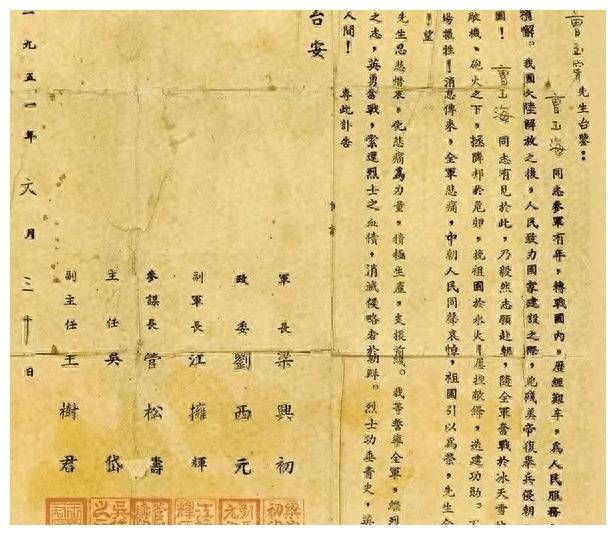 曹玉 先生台鑒：
曹玉海 同志參軍有年，轉戰國內，歷經艱辛，為人民服務
解。我國大陸解放之後，人民致力國家建設之際，兇殘美帝復舉兵侵朝
國！ 曹玉海 同志有見於此，乃毅然志願赴朝，隨全軍奮戰於冰天雪地
敵機、砲火之下，拯鄰邦於危卵，挽祖國於水火！屢挫敵鋒，迭建功勛。
場犧牲！消息傳來，全軍悲痛，中朝人民同聲哀悼，祖國引以為榮，先生
！望
先生忍悲惜哀，化悲痛為力量，積極生產，支援前綫。我等誓率全軍，繼烈
之志，英勇奮戰，索還烈士之血債，消滅侵略者於朝鮮。烈士功垂青史，英
人間！ 專此訃告
台安
軍長 梁興初
政委 劉西元
副軍長 江擁輝
參謀長 管松壽
主任 吳岱
副主任 王樹君
一九五一年六月三十日